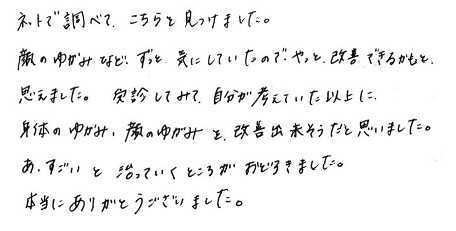 ネットで調べて、こちらを見つけました。
顔のゆがみなど、ずっと気にしていたので、やっと改善できるかもと、
思えました。 受診してみて、自分が考えていた以上に、
身体のゆがみ、顔のゆがみを、改善出来そうだと思いました。
あ、すごいと治っていくところがおどろきました。
本当にありがとうございました。